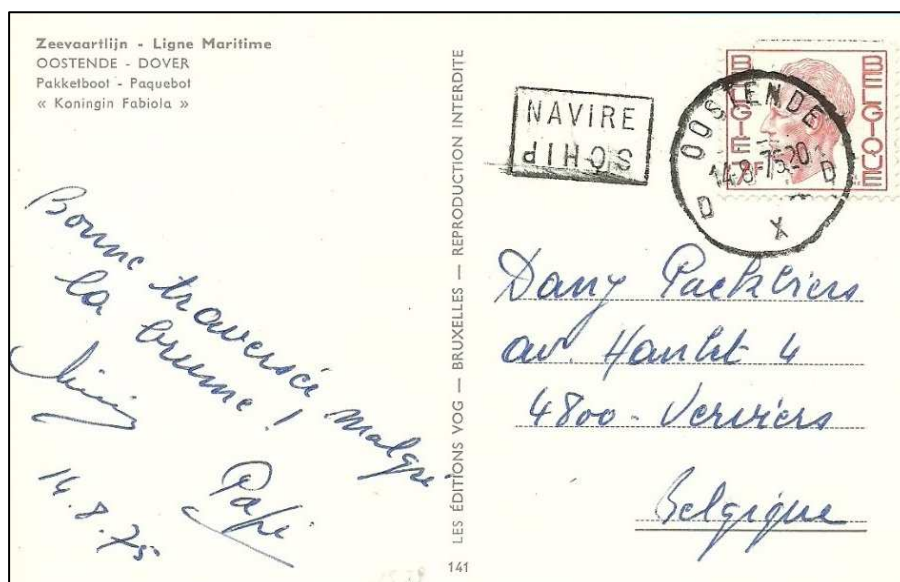 Zeevaartlijn - Ligne Maritime
OOSTENDE - DOVER
Pakketboot - Paquebot
« Koningin Fabiola »
Bonne traversée malgré
la brume !
Papi
14.8.75
LES ÉDITIONS VOG — BRUXELLES — REPRODUCTION INTERDITE
141
NAVIRE
SCHIP
BELGIE
BELGIQUE
OOSTENDE
14-8-75
D X D
Dany
av. 4
4800 - Verviers
Belgique